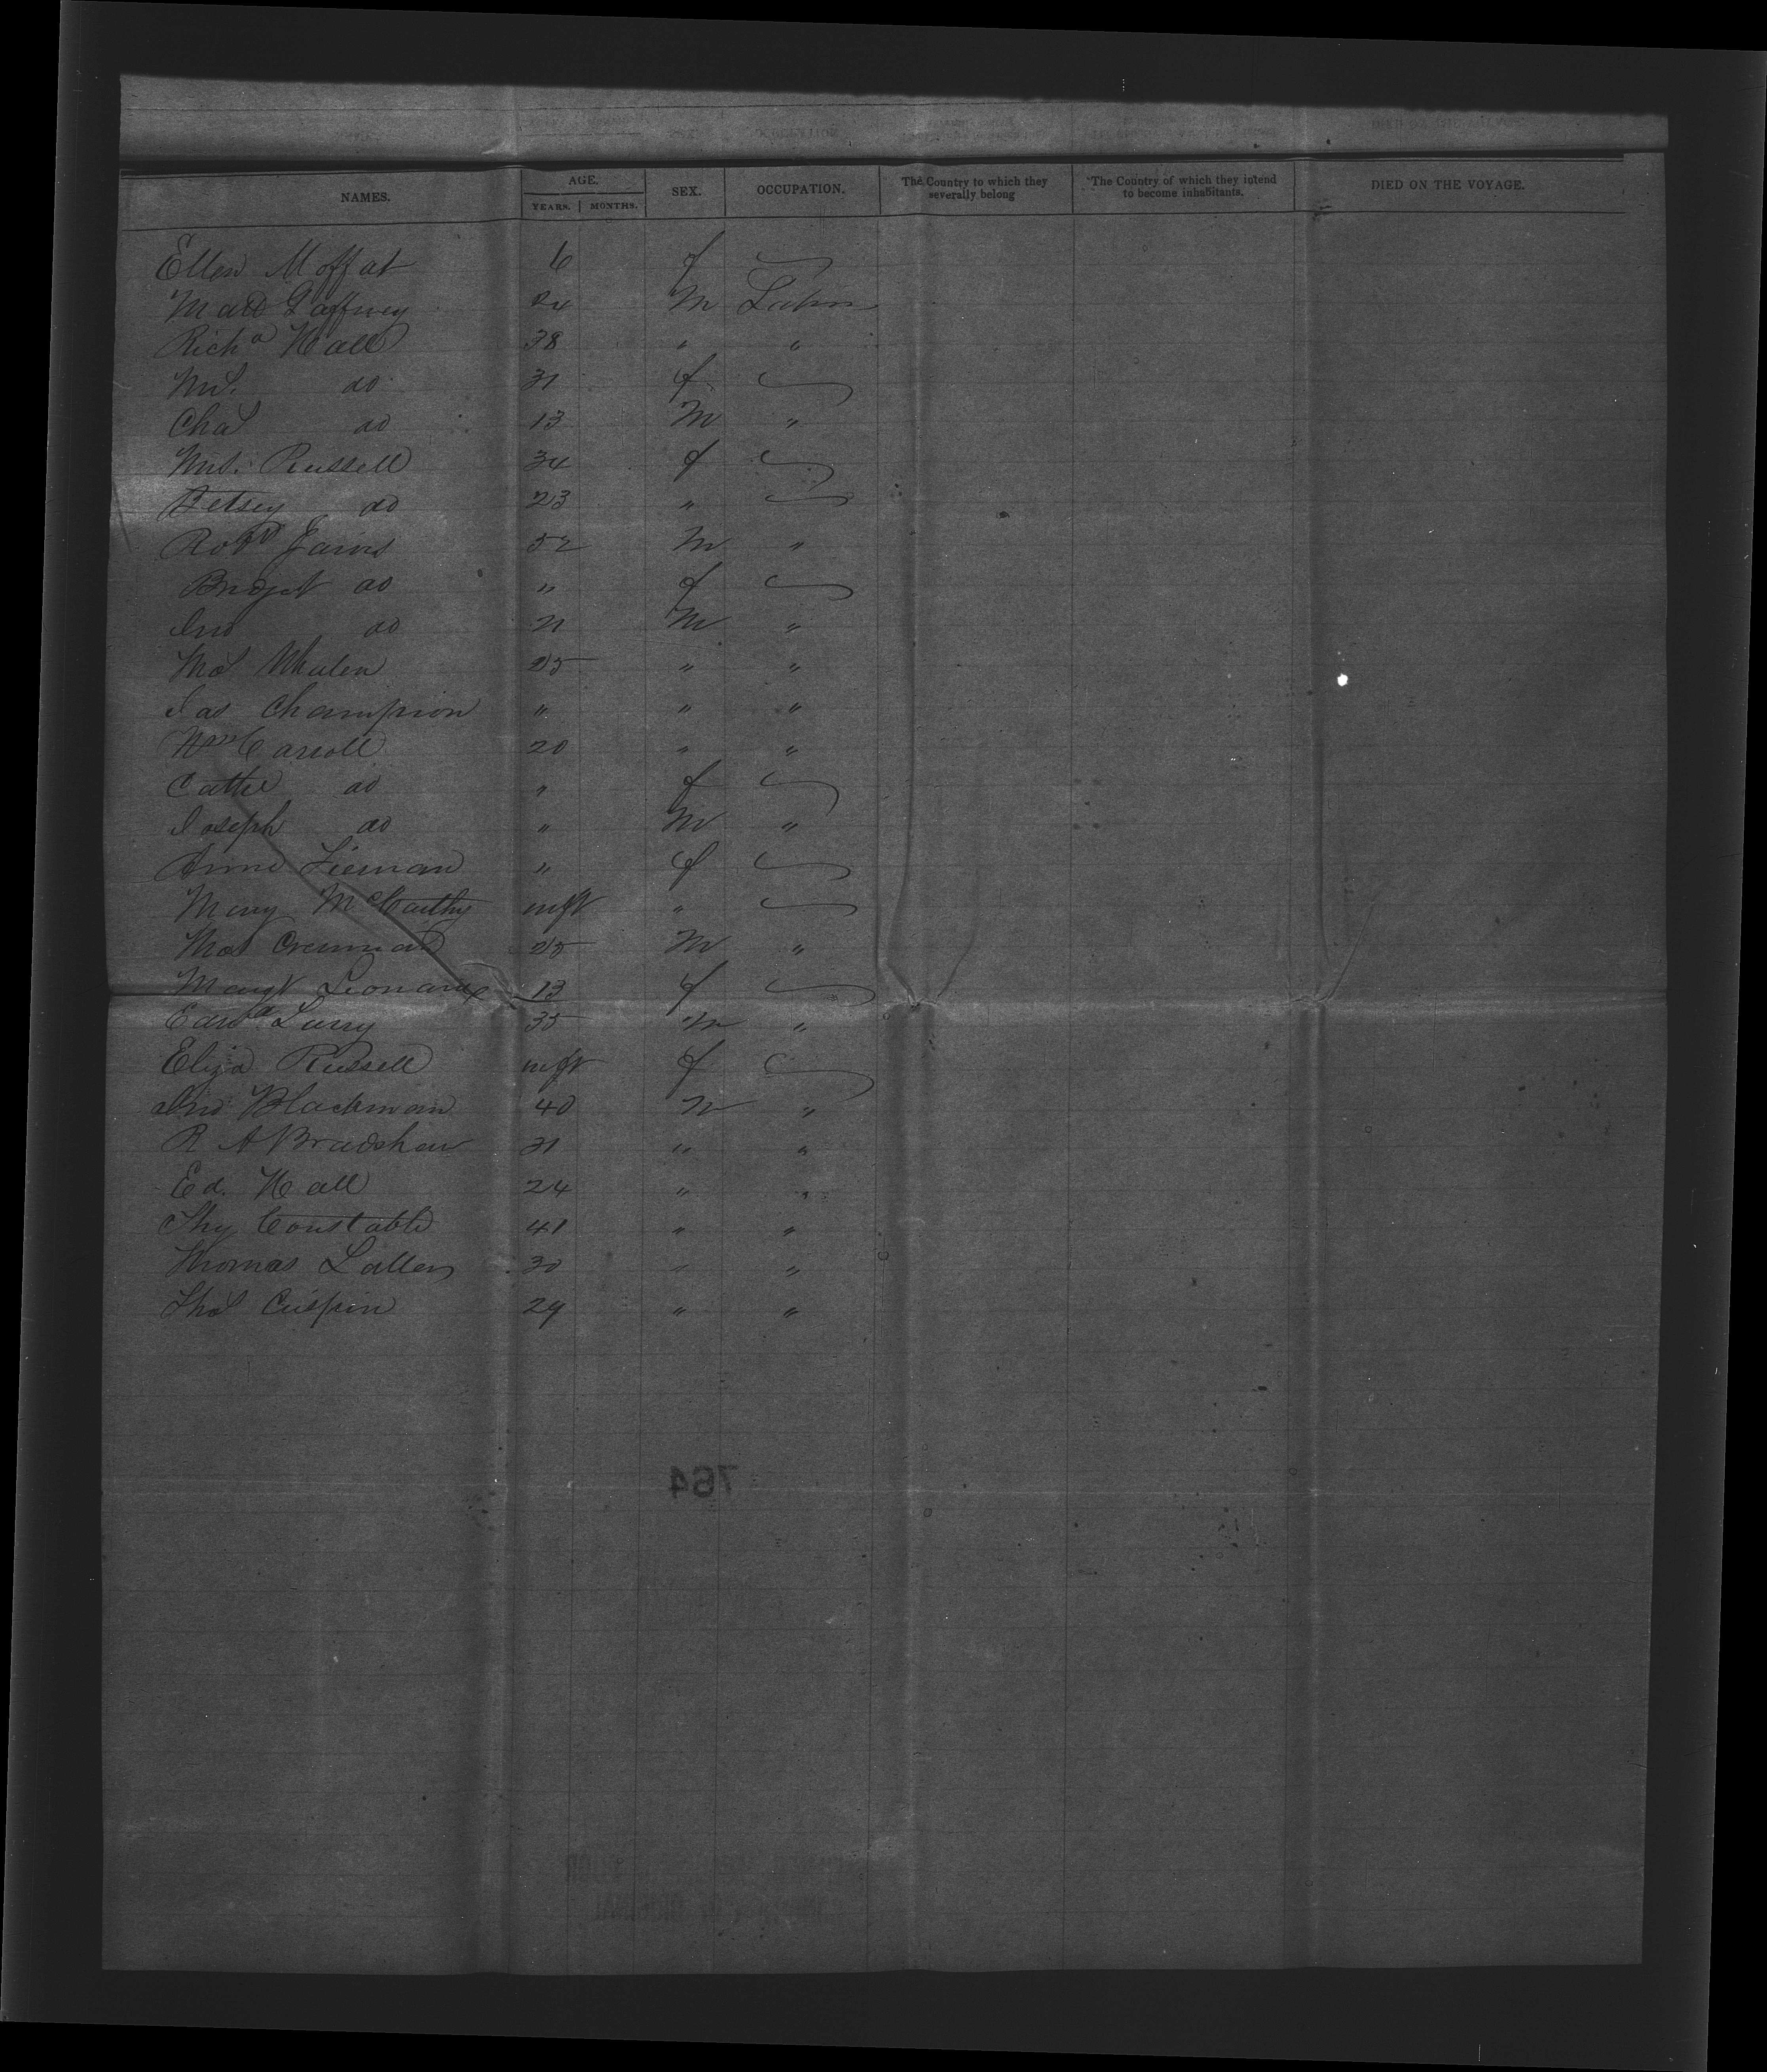 NAMES. AGE. SEX. OCCUPATION. The Country to which they severally belong The Country of which they intend to become inhabitants. DIED ON THE VOYAGE.
YEARS. MONTHS.
Ellen Moffat 6 f
Matt Gaffney 24 M Labr
Richd Hall 38 " "
Mrs. do 31 f
Chas do 13 M "
Mrs. Russell 34 f
Betsey do 23 "
Robt Jarvis 52 M "
Bridget do " f
Jno do 21 M "
Thos Whalen 25 " "
Jas Champion " " "
Wm Carroll 20 " "
Cathe do " f
Joseph do " M "
Anne Tiernan " f
Mary McCarthy inft "
Thos 25 M "
Margt Leonard 13 f
Edwd Larry 35 M "
Eliza Russell inft f
Jno Blackman 40 M "
R A Bradshaw 31 " "
Ed. Hall 24 " "
Thy Constable 41 " "
Thomas Lallen 30 " "
Thos Crispin 29 " "
764